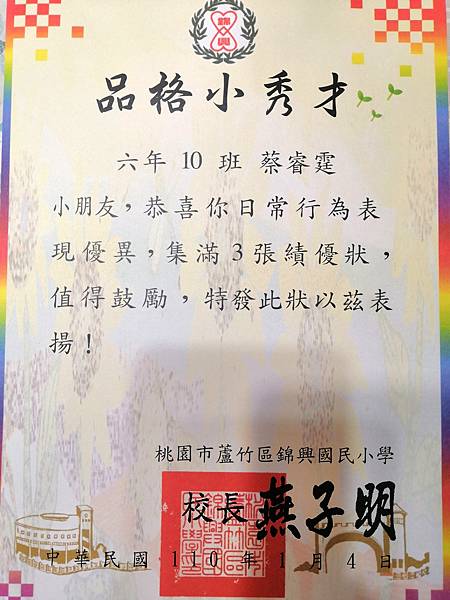 錦興
品格小秀才
六年 10 班 蔡睿霆
小朋友，恭喜你日常行為表
現優異，集滿 3 張績優狀，
值得鼓勵，特發此狀以茲表
揚！
桃園市蘆竹區錦興國民小學
校長 燕子明
中華民國 110 年 1 月 4 日